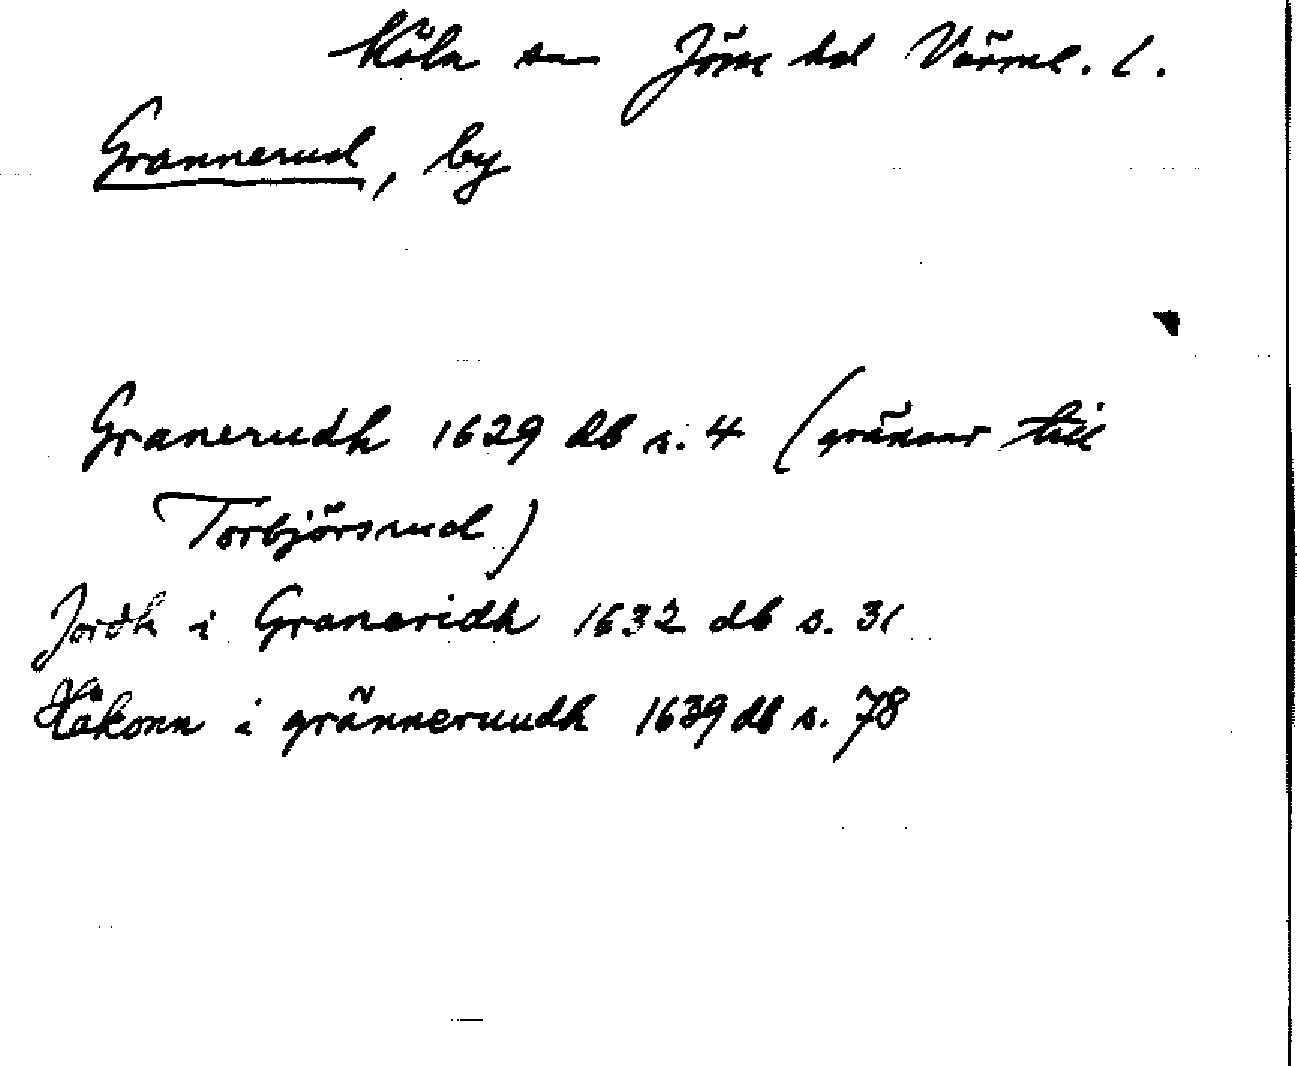 Köla sn Jösse hd Värml. l.
Grannerud, by
Granerudh 1629 db s. 4 (gränsar till
Torbjörsrud)
Jordh i Graneridh 1632 db s. 31
Håkonn i gränneruudh 1639 db s. 78